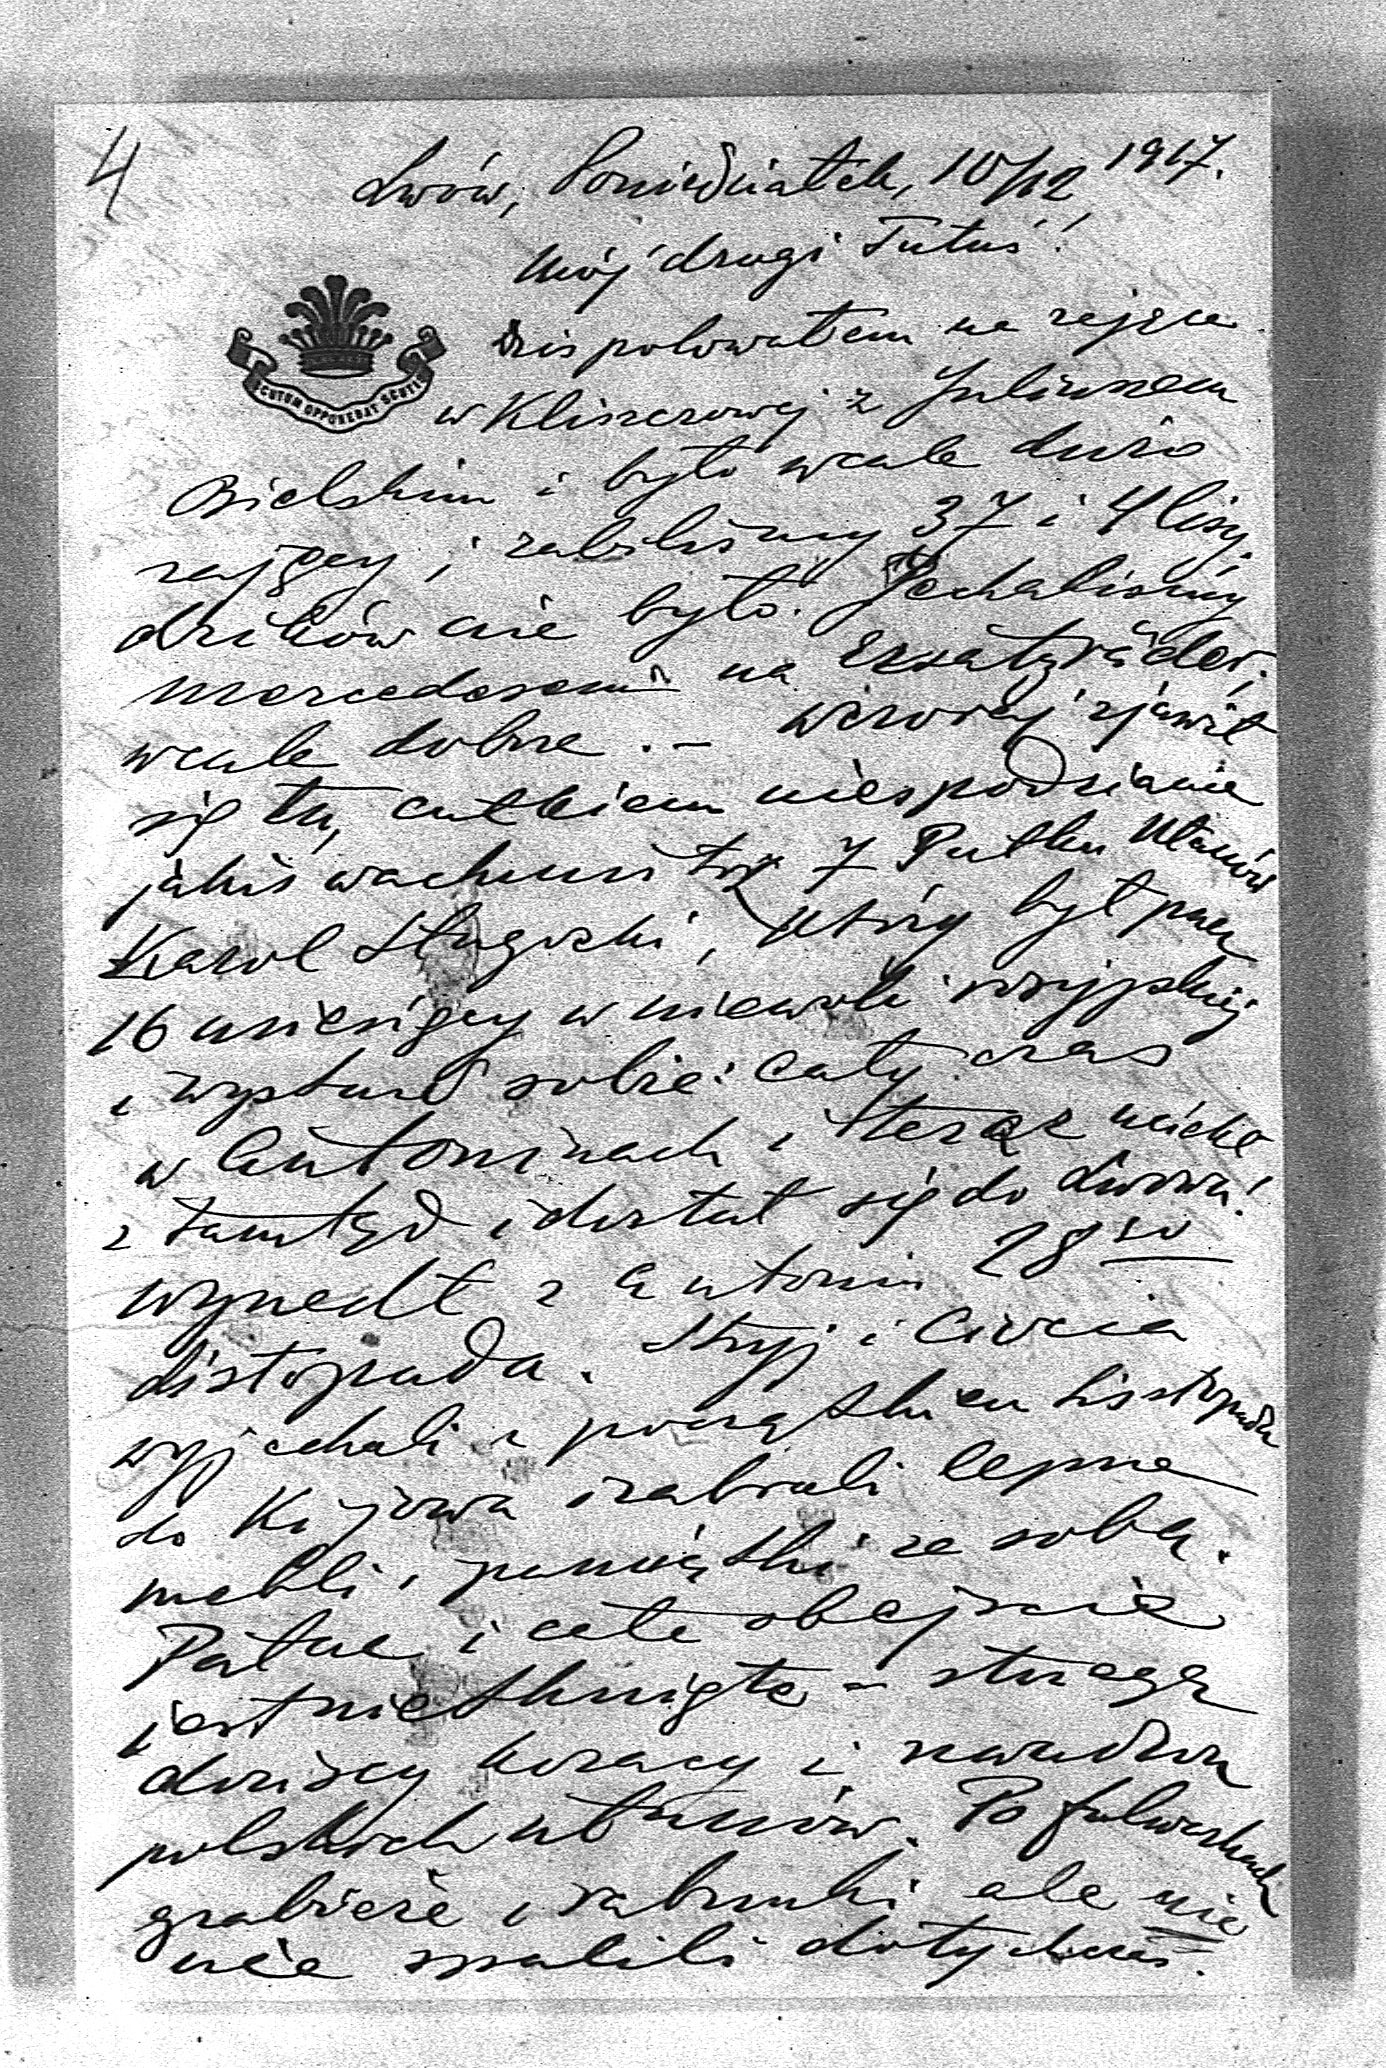 4
Lwów, Poniedziałek, 10/12 1917.
Mój drogi Tutuś!
SCUTUM OPPONEBAT SCUTIS
Dziś polowałem na zające
w Kliszczowej z Juliuszem
Bielskim i było wcale dużo
zajęcy, i zabiliśmy 37 i 4 lisy.
dzików nie było. Jechaliśmy
mercedesem na Ersatzräder,
wcale dobrze. – Wczoraj zjawił
się tu, całkiem niespodzianie
jakiś wachmistrz 7 Pułku Ułanów
Karol Długocki, który był przez
16 miesięcy w niewoli rosyjskiej
i wysłużył sobie cały czas
w Antoninach i teraz uciekł
z tamtąd i dostał się do Lwowa!
wyszedł z Antonin 28go
Listopada. Stryj i Ciocia
wyjechali z początkiem Listopada
do Kijowa i zabrali lepsze
mebli i pamiątki ze sobą.
Pałac i całe obejście
jest nietknięte – strzegą
dońscy kozacy i
polskich ułanów. Po folwarkach
grabieże i rabunki ale nic
nie spalili dotychczas.